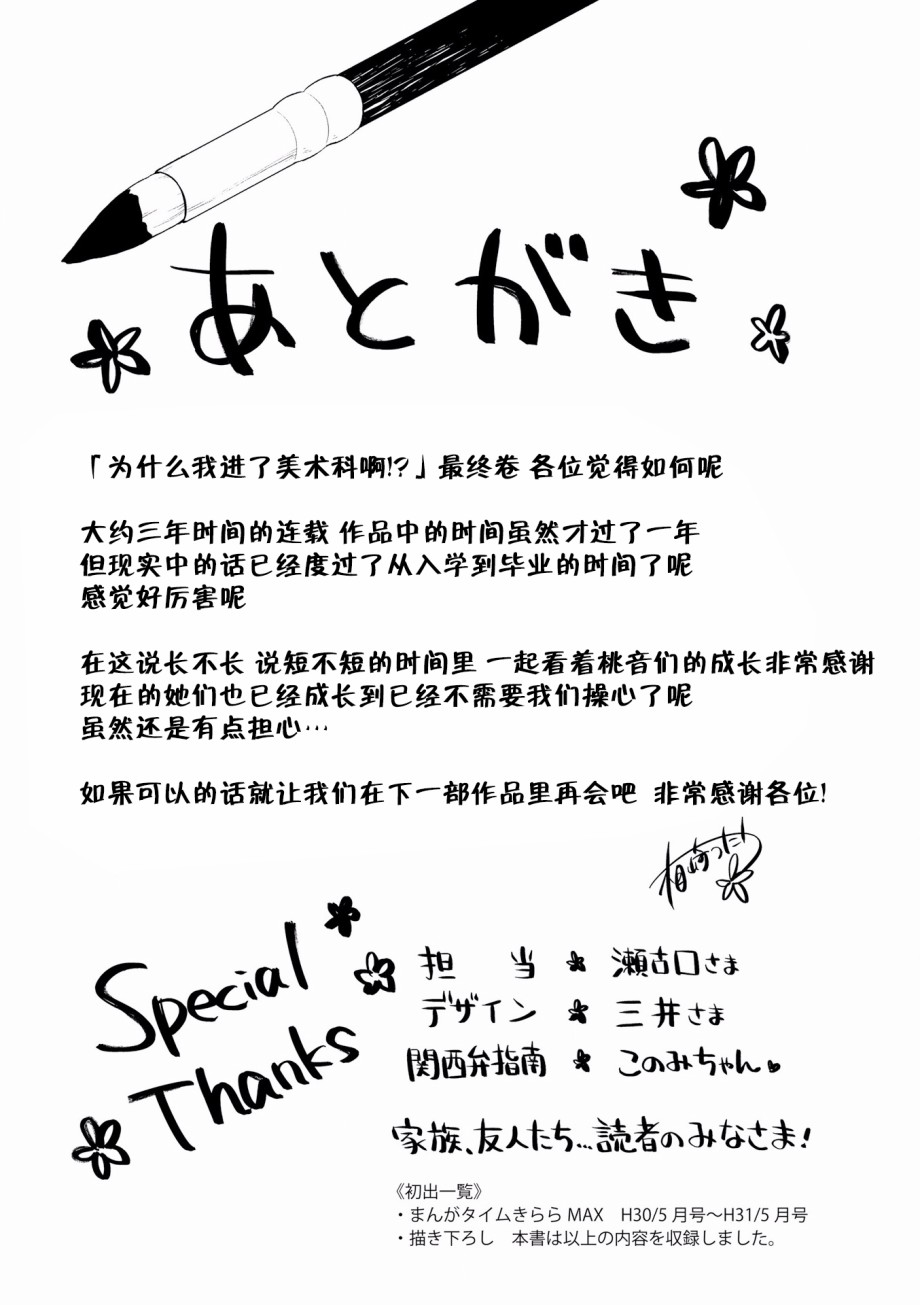 あとがき
「为什么我进了美术科啊!?」最终卷 各位觉得如何呢
大约三年时间的连载 作品中的时间虽然才过了一年
但现实中的话已经度过了从入学到毕业的时间了呢
感觉好厉害呢
在这说长不长 说短不短的时间里 一起看着桃音们的成长非常感谢
现在的她们也已经成长到已经不需要我们操心了呢
虽然还是有点担心…
如果可以的话就让我们在下一部作品里再会吧 非常感谢各位!
Special
Thanks
担当 瀬古口さま
デザイン 三井さま
関西弁指南 このみちゃん
家族、友人たち...読者のみなさま!
《初出一覧》
・まんがタイムきららMAX H30/5月号～H31/5月号
・描き下ろし 本書は以上の内容を収録しました。